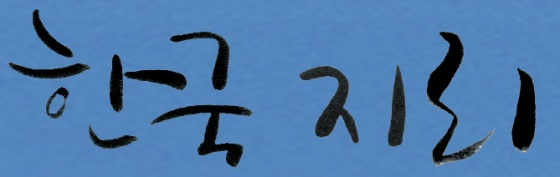 한국 지리